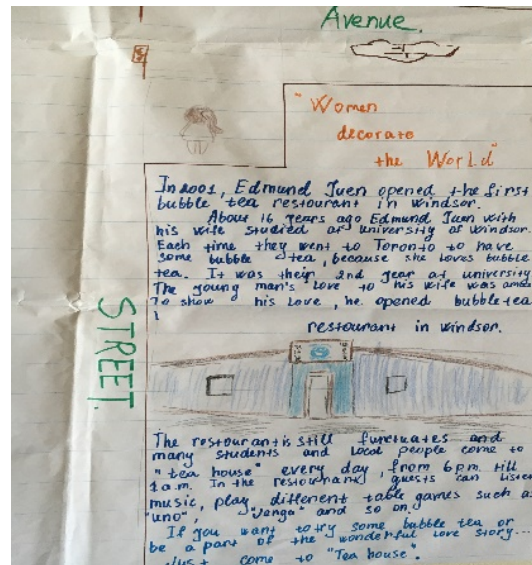 Avenue.
"Women
decorate
the World"
In 2001, Edmund Juen opened the first
bubble tea restourant in windsor.
About 16 years ago Edmund Juen with
his wife studied at university of Windsor.
Each time they went to Toronto to have
some bubble tea, because she loves bubble
tea. It was their 2nd year at university
The young man's love to his wife was
To show his love, he opened bubble tea
restourant in windsor.
STREET.
The restourant is still functuates and
many students and local people come to
"tea house" every day, from 6 p.m. till
1 a.m. In the restourant guests can listen
music, play different table games such a
"uno", "Jenga" and so on.
If you want to try some bubble tea or
be a part of the wonderful love story...
Just come to "Tea house".